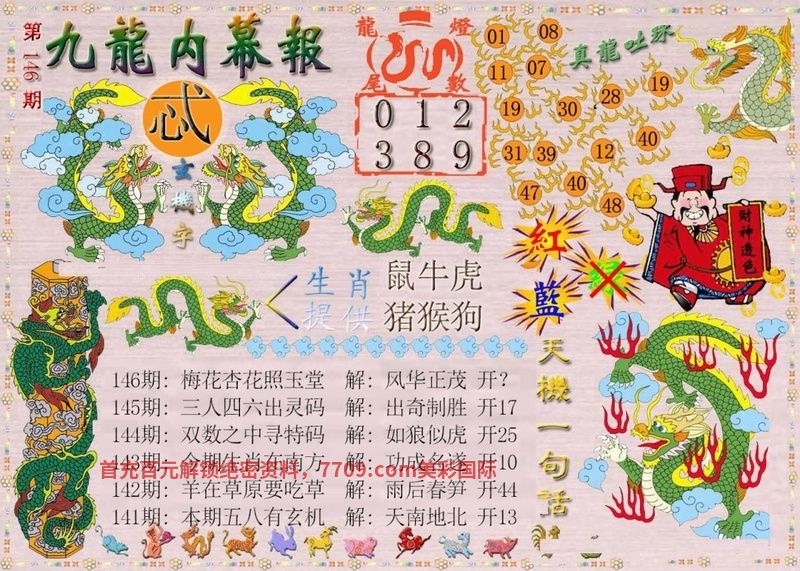 第146期
九龍內幕報
忒
玄機字
龍燈
尾數
0 1 2
3 8 9
真龍吐珠
01 08
11 07
19 30 28 19
31 39 12 40
47 40 48
紅
藍
綠
財神透色
生肖 鼠牛虎
提供 猪猴狗
天機一句話
146期: 梅花杏花照玉堂 解: 风华正茂 开?
145期: 三人四六出灵码 解: 出奇制胜 开17
144期: 双数之中寻特码 解: 如狼似虎 开25
143期: 今期生肖在南方 解: 功成名遂 开10
首充百元解锁绝密资料，7709.com美彩国际
142期: 羊在草原要吃草 解: 雨后春笋 开44
141期: 本期五八有玄机 解: 天南地北 开13